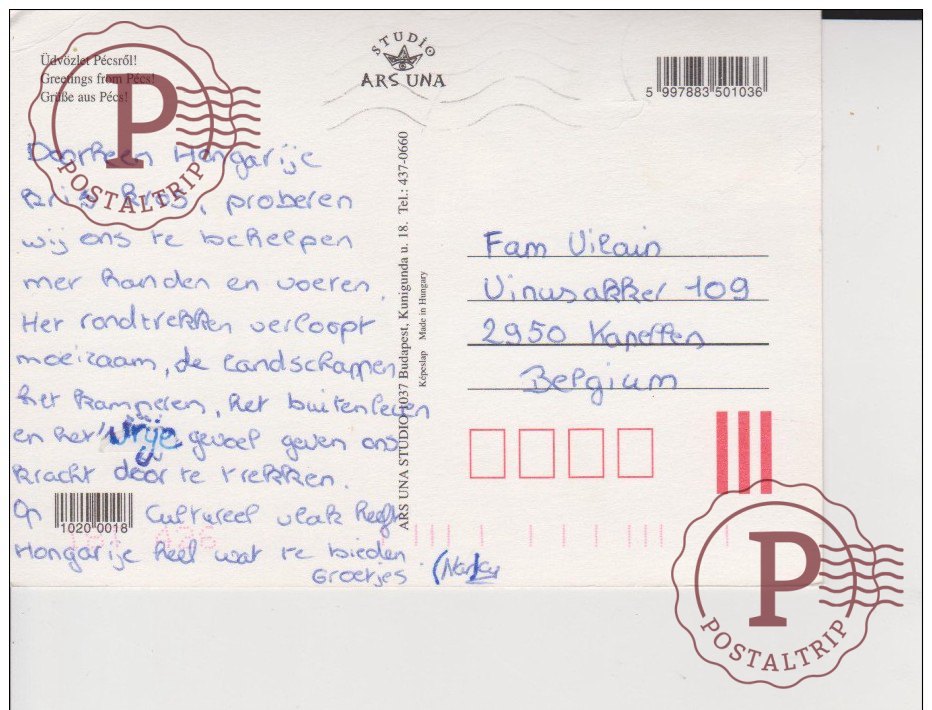 Üdvözlet Pécsről!
Greetings from Pécs!
Grüße aus Pécs!
STUDIO
ARS UNA
5 997883 501036
P
POSTALTRIP
Doorheen Hongarije
kris kros, proberen
wij ons te behelpen
met handen en voeten.
Het rondtrekken verloopt
moeizaam, de landschappen,
het kamperen, het buitenleven
en het 'vrije' gevoel geven ons
kracht door te trekken.
Op Cultureel vlak heeft
1020 0018
Hongarije heel wat te bieden
Groetjes (Nancy
ARS UNA STUDIO 1037 Budapest, Kunigunda u. 18. Tel.: 437-0660
Képeslap Made in Hungary
Fam Vilain
109
2950 Kapellen
Belgium
P
POSTALTRIP